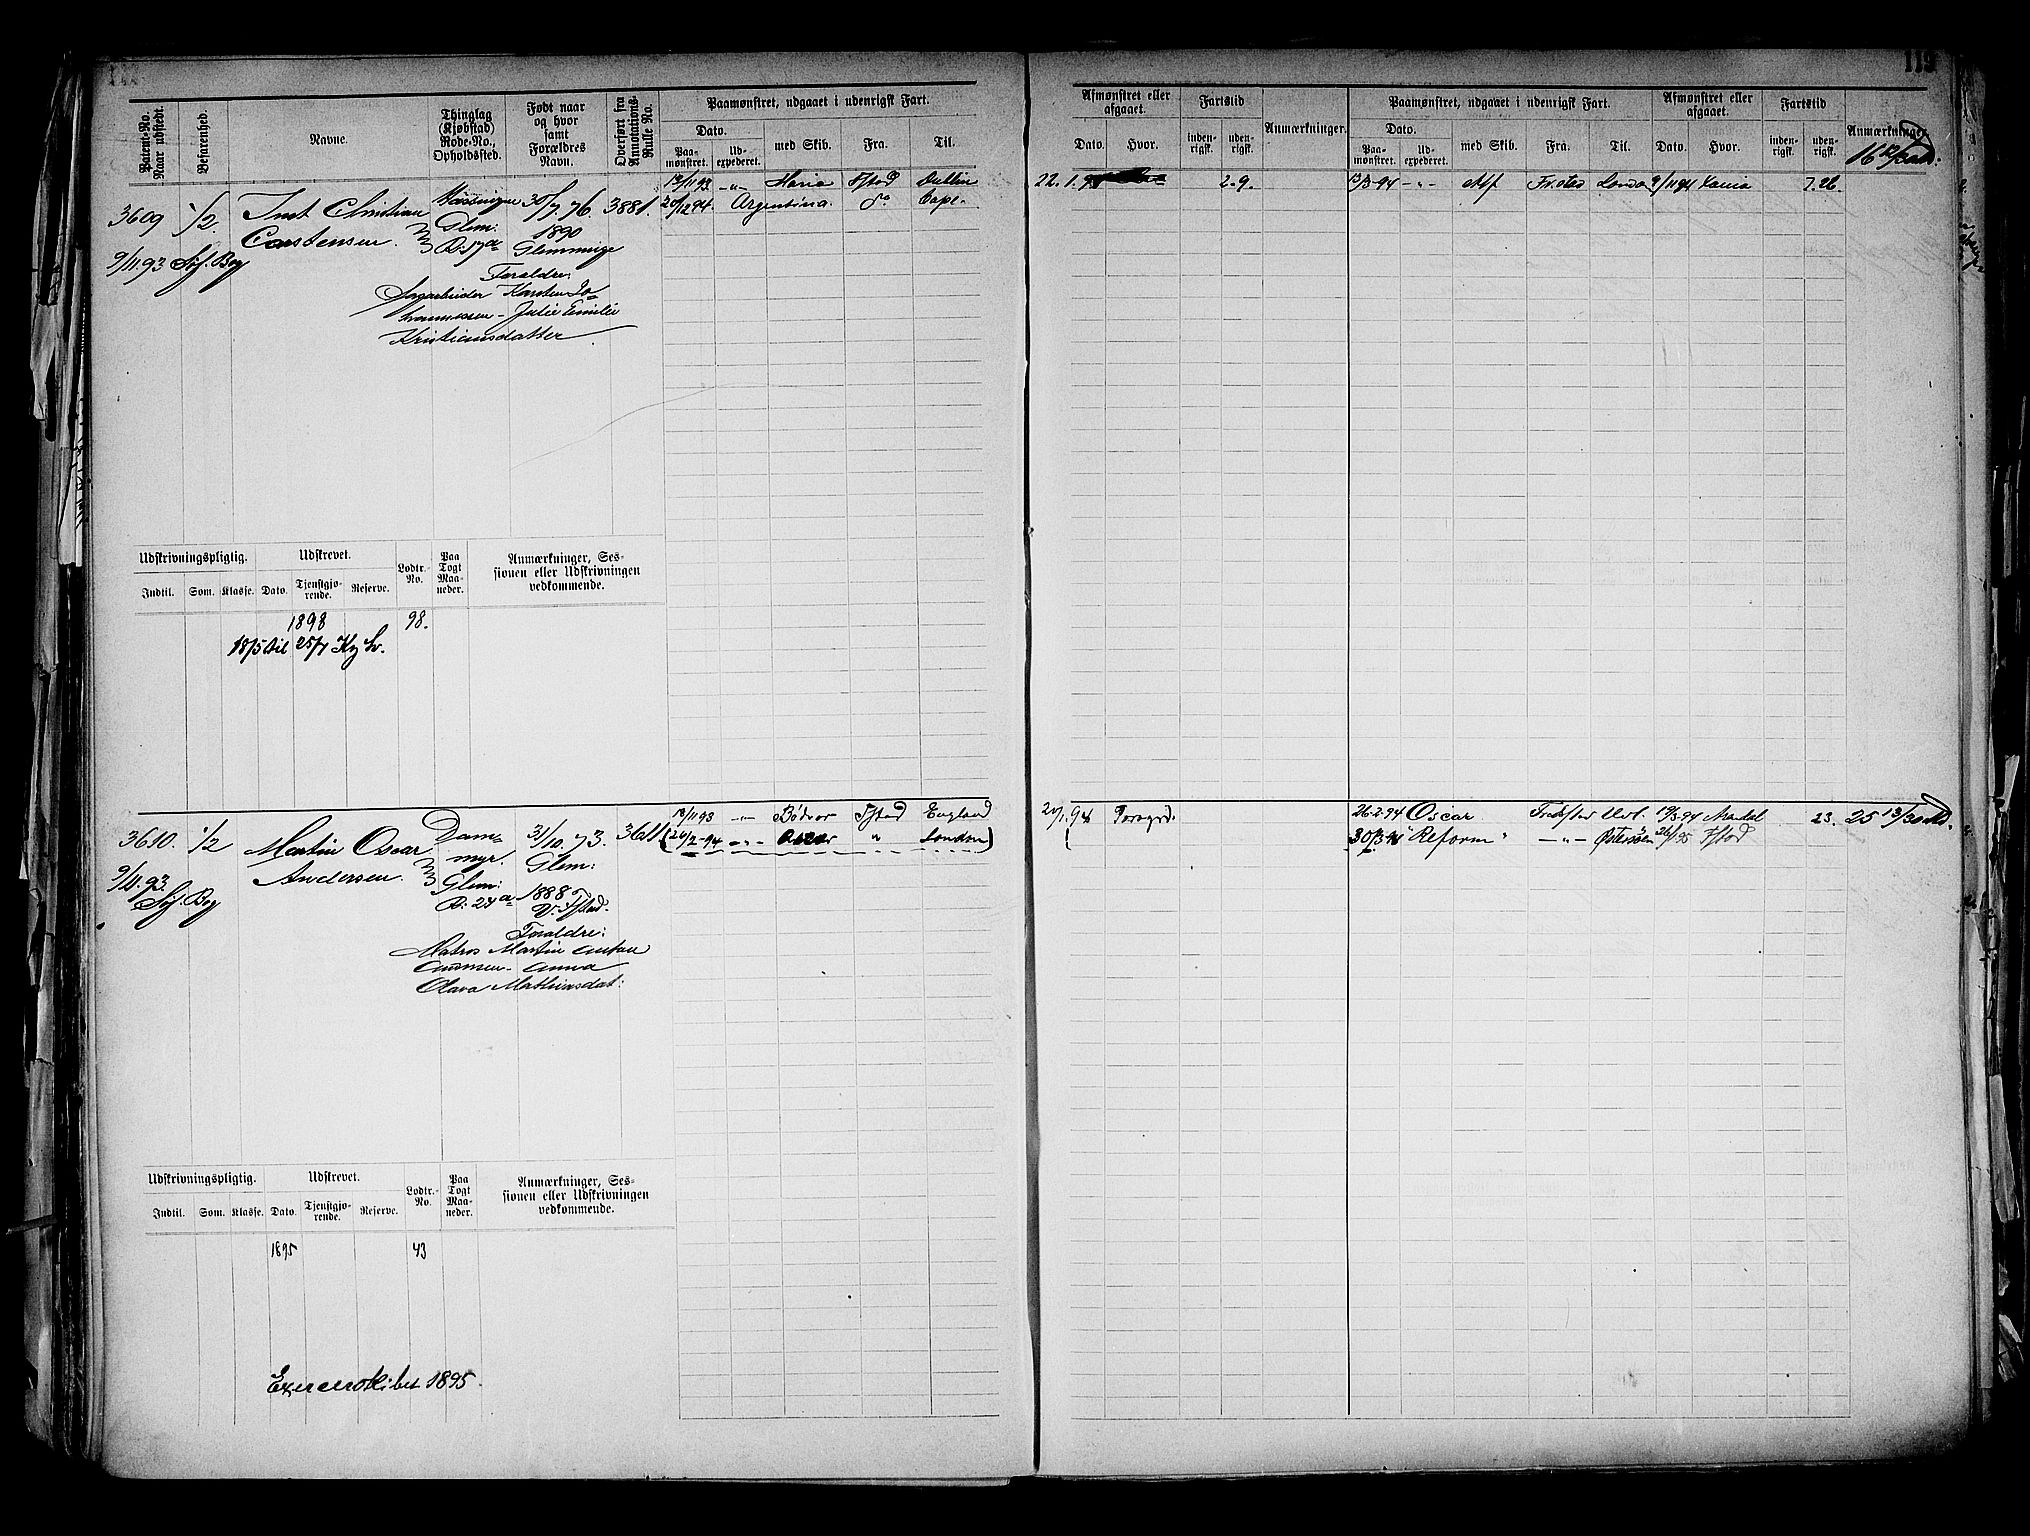 112
Patent-No. Naar udstedt.
Befarenhed.
Navne.
Thinglag (Kjøbstad) Rode-No., Opholdssted.
Født naar og hvor samt Forældres Navn.
Overført fra Annotations-Rulle No.
Paamønstret, udgaaet i udenrigsk Fart.
Dato.
Paamønstret.
Udexpederet.
med Skib.
Fra.
Til.
Afmønstret eller afgaaet.
Dato.
Hvor.
Fartstid
indenrigsk.
udenrigsk.
Anmærkninger.
Paamønstret, udgaaet i udenrigsk Fart.
Dato.
Paamønstret.
Udexpederet.
med Skib.
Fra.
Til.
Afmønstret eller afgaaet.
Dato.
Hvor.
Fartstid
indenrigsk.
udenrigsk.
Anmærkninger.
3609
1/2
Just Christian
Carstensen
9/11.93 Søf. Bog
Glem:
R: 17a
30/7.76.
1890
Glemminge
Forældre:
Karsten
Julie Emilie
Kristiansdatter
3881.
13/11 93 -"- Maria Fstad Dublin
20/12 94 Argentina. do Cape.
22.1.94
2.9.
13/3-94 -"- Alf Fr.stad 9/11 94 Xania 7.26.
Udskrivningspligtig.
Udskrevet.
Lodtr.-No.
Paa Togt Maaneder.
Anmærkninger, Sessionen eller Udskrivningen vedkommende.
Indtil.
Som.
Klasse.
Dato.
Tjenstgjørende.
Reserve.
1898
98.
18/5 til 25/7
3610.
1/2
Martin Oscar
Andersen
9/11.93.
Søf. Bog
Dammyr.
Glem:
R: 24a
31/10.73.
Glem:
1888
V: Fstad.
Forældre:
Matros Martin Anton
Anna
Olava Mathiasdat:
3611
13/11 93 -"- Bødvar Fstad England
(20/2-94 -"- Oscar " London)
20/1.94
26-2-94 Oscar 19/3.94 Mandal 23.
30/3-94 "Reform" -"- Østersøen 26/1 95 Fstad
Udskrivningspligtig.
Udskrevet.
Lodtr.-No.
Paa Togt Maaneder.
Anmærkninger, Sessionen eller Udskrivningen vedkommende.
Indtil.
Som.
Klasse.
Dato.
Tjenstgjørende.
Reserve.
1895
43
1895.